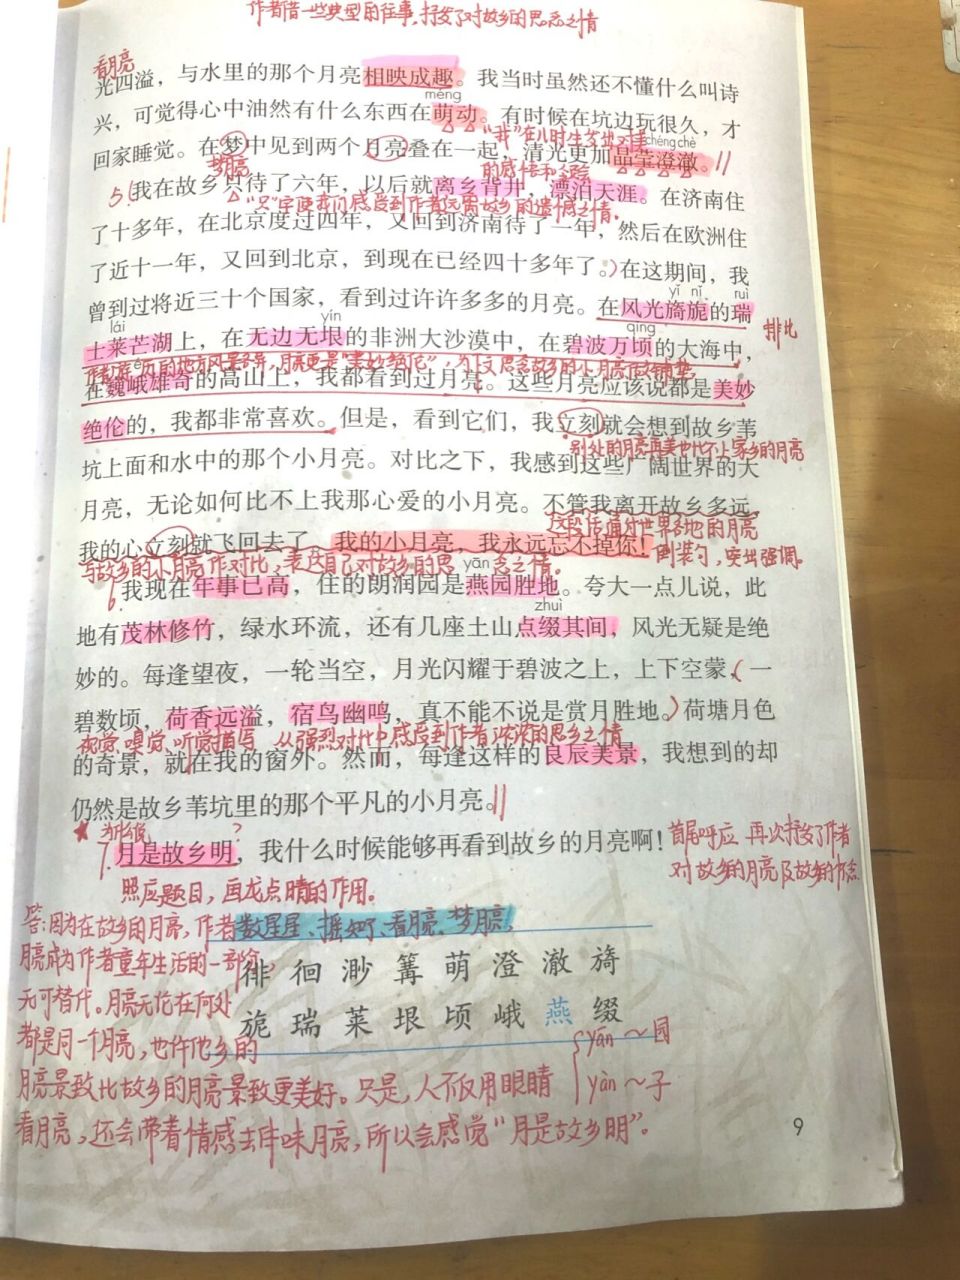 作者借一些典型的往事,抒发了对故乡的思念之情
看月亮
光四溢，与水里的那个月亮相映成趣。我当时虽然还不懂什么叫诗
méng
兴，可觉得心中油然有什么东西在萌动。有时候在坑边玩很久，才
"我"在儿时生发出对美
chéng chè
回家睡觉。在梦中见到两个月亮叠在一起，清光更加晶莹澄澈。
梦月亮
的感悟和体验
5.我在故乡只待了六年，以后就离乡背井，漂泊天涯。在济南住
"只"字使我们感受到作者远离故乡的遗憾之情。
了十多年，在北京度过四年，又回到济南待了一年，然后在欧洲住
了近十一年，又回到北京，到现在已经四十多年了。在这期间，我
曾到过将近三十个国家，看到过许许多多的月亮。在风光旖旎的瑞
yī nǐ ruì
lái yín qǐng
士莱芒湖上，在无边无垠的非洲大沙漠中，在碧波万顷的大海中，
排比
在巍峨雄奇的高山上，我都看到过月亮。这些月亮应该说都是美妙
绝伦的，我都非常喜欢。但是，看到它们，我立刻就会想到故乡苇
别处的月亮再美也比不上家乡的月亮
坑上面和水中的那个小月亮。对比之下，我感到这些广阔世界的大
月亮，无论如何比不上我那心爱的小月亮。不管我离开故乡多远，
这段话通过世界各地的月亮
我的心立刻就飞回去了。我的小月亮，我永远忘不掉你！
倒装句,突出强调。
与故乡的小月亮作对比,表达自己对故乡的思念之情。
yān
6.我现在年事已高，住的朗润园是燕园胜地。夸大一点儿说，此
zhuì
地有茂林修竹，绿水环流，还有几座土山点缀其间，风光无疑是绝
妙的。每逢望夜，一轮当空，月光闪耀于碧波之上，上下空蒙，一
碧数顷，荷香远溢，宿鸟幽鸣，真不能不说是赏月胜地。荷塘月色
视觉、嗅觉、听觉描写 从强烈对比中感受到作者浓浓的思乡之情
的奇景，就在我的窗外。然而，每逢这样的良辰美景，我想到的却
仍然是故乡苇坑里的那个平凡的小月亮。
★为什么说 ?
7.月是故乡明，我什么时候能够再看到故乡的月亮啊！
首尾呼应 再次抒发了作者
对故乡的月亮及故乡的怀念
照应题目,画龙点睛的作用。
答:因为在故乡的月亮,作者数星星、摇知了、看月亮、梦月亮,
月亮成为作者童年生活的一部分,
无可替代。月亮无论在何处
都是同一个月亮,也许他乡的
月亮景致比故乡的月亮景致更美好。只是,人不仅用眼睛
看月亮,还会带着情感去体味月亮,所以会感觉"月是故乡明"。
徘 徊 渺 篝 萌 澄 澈 旖
旎 瑞 莱 垠 顷 峨 燕 缀
yān ~园
yàn ~子
9